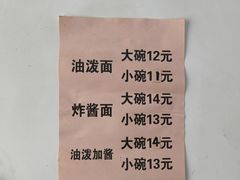 油泼面 大碗12元
小碗11元
炸酱面 大碗14元
小碗13元
油泼加酱 大碗14元
小碗13元